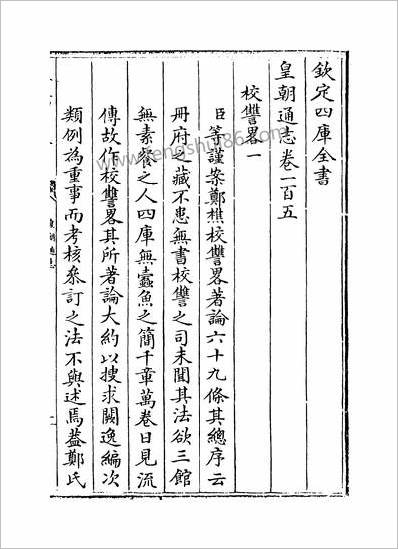 欽定四庫全書
皇朝通志卷一百五
校讐畧一
臣等謹案鄭樵校讐畧著論六十九條其總序云
冊府之藏不患無書校讐之司未聞其法欲三館
無素餐之人四庫無蠹魚之簡千章萬卷日見流
傳故作校讐畧其所著論大約以搜求闕逸編次
類例為重事而考核叅訂之法不與述焉葢鄭氏